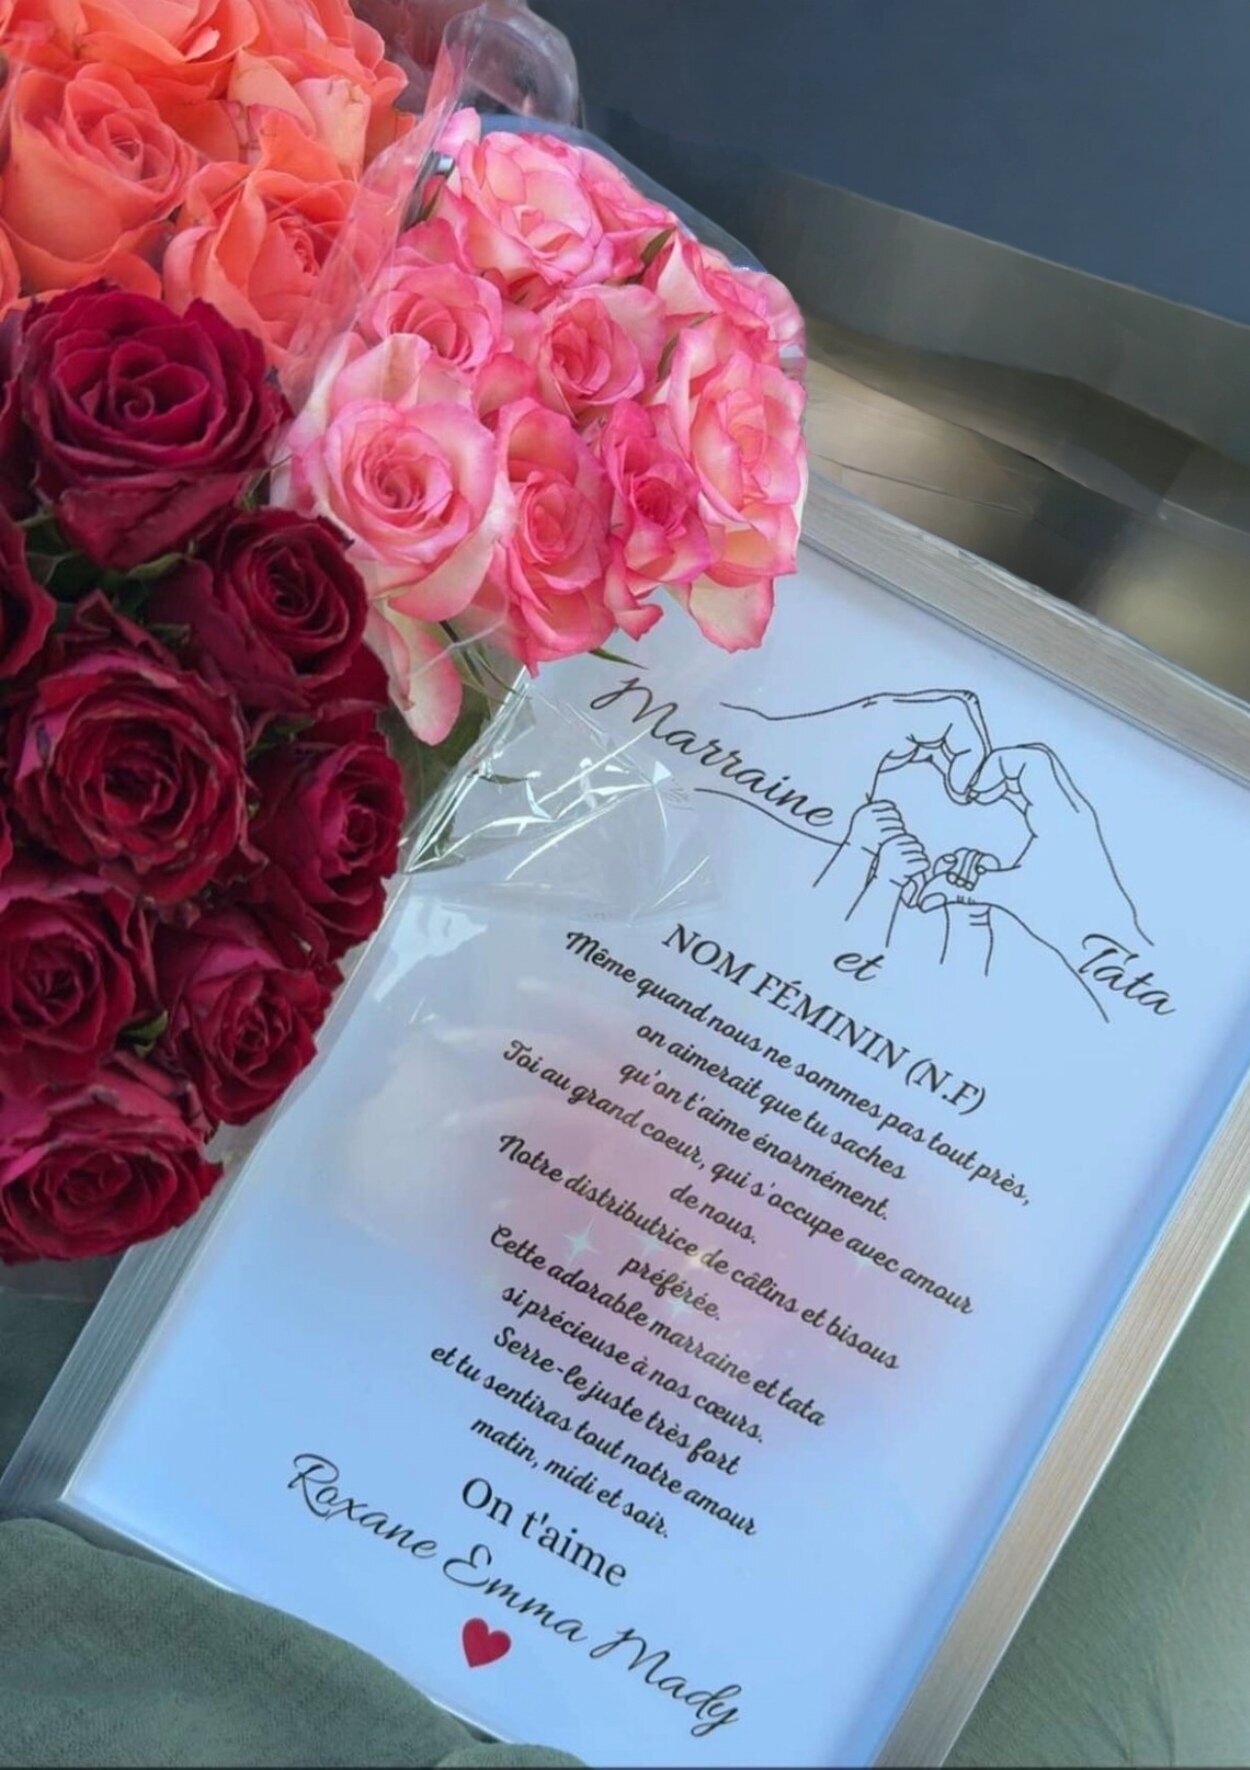 Marraine
et
Tata
NOM FÉMININ (N.F)
Même quand nous ne sommes pas tout près,
on aimerait que tu saches
qu'on t'aime énormément.
Toi au grand coeur, qui s'occupe avec amour
de nous.
Notre distributrice de câlins et bisous
préférée.
Cette adorable marraine et tata
si précieuse à nos cœurs.
Serre-le juste très fort
et tu sentiras tout notre amour
matin, midi et soir.
On t'aime
Roxane Emma Mady